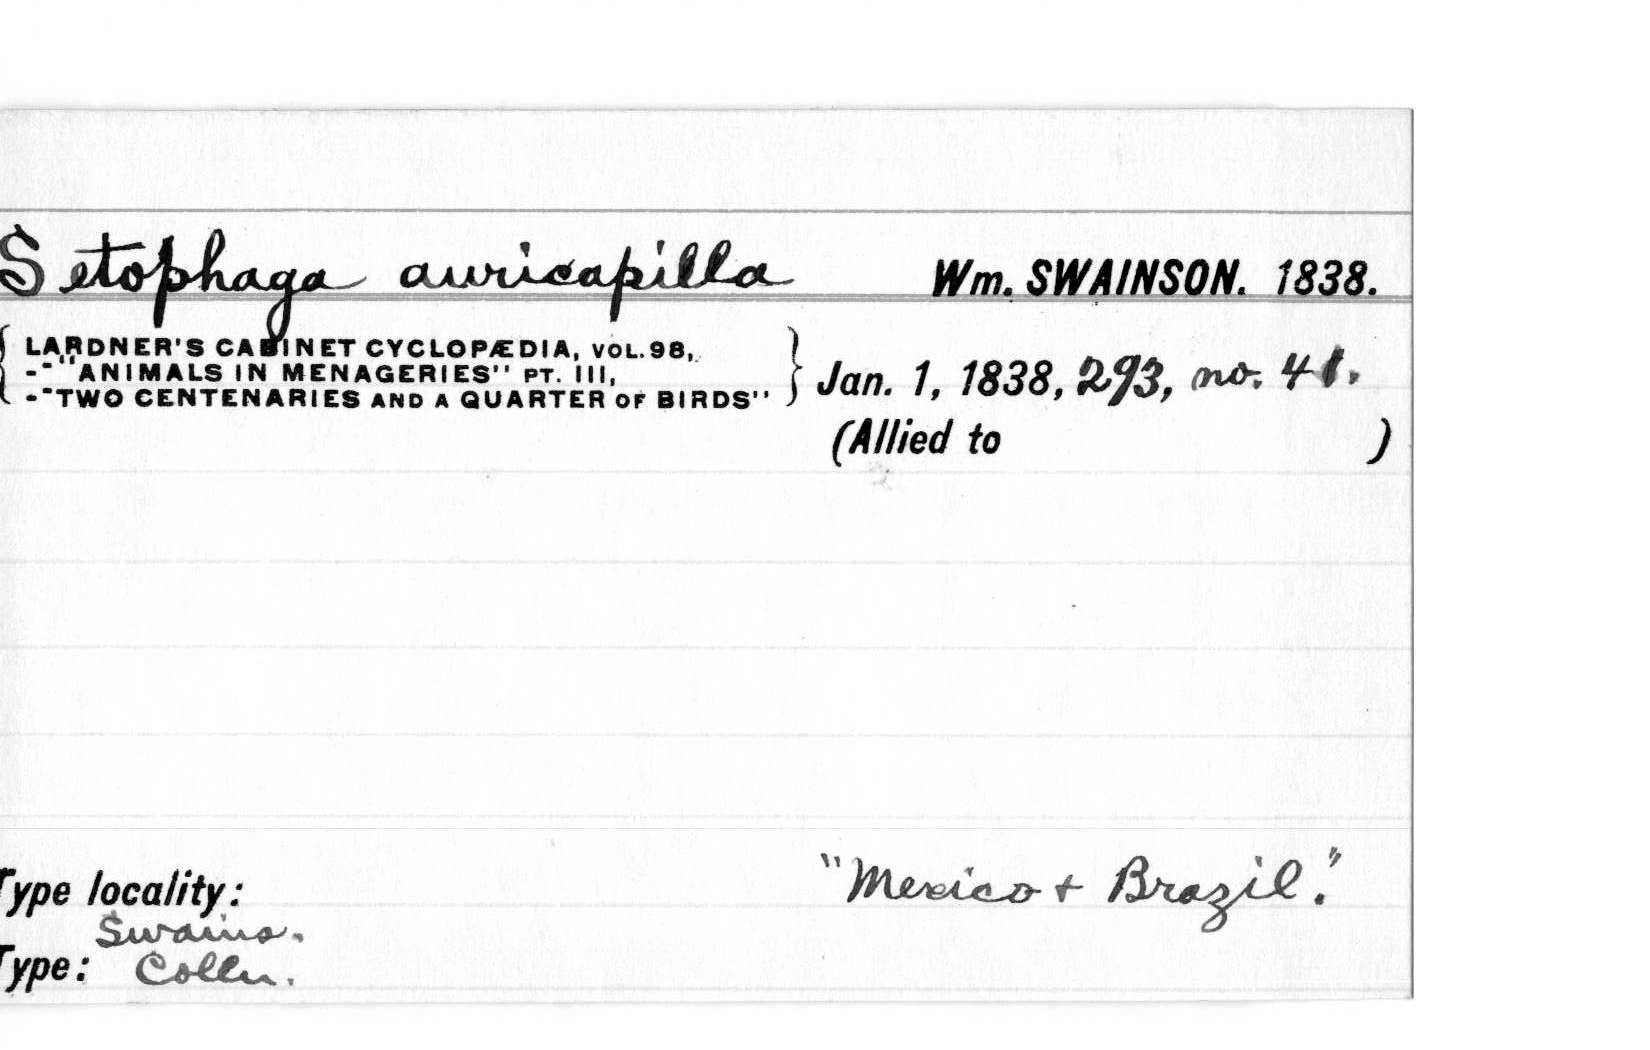 Setophaga auricapilla Wm. SWAINSON. 1838.
LARDNER'S CABINET CYCLOPÆDIA, VOL. 98,
-- "ANIMALS IN MENAGERIES" PT. III,
-- "TWO CENTENARIES AND A QUARTER OF BIRDS"
Jan. 1, 1838, 293, no. 41.
(Allied to )
Type locality: "Mexico + Brazil."
Swains.
Type: Colln.